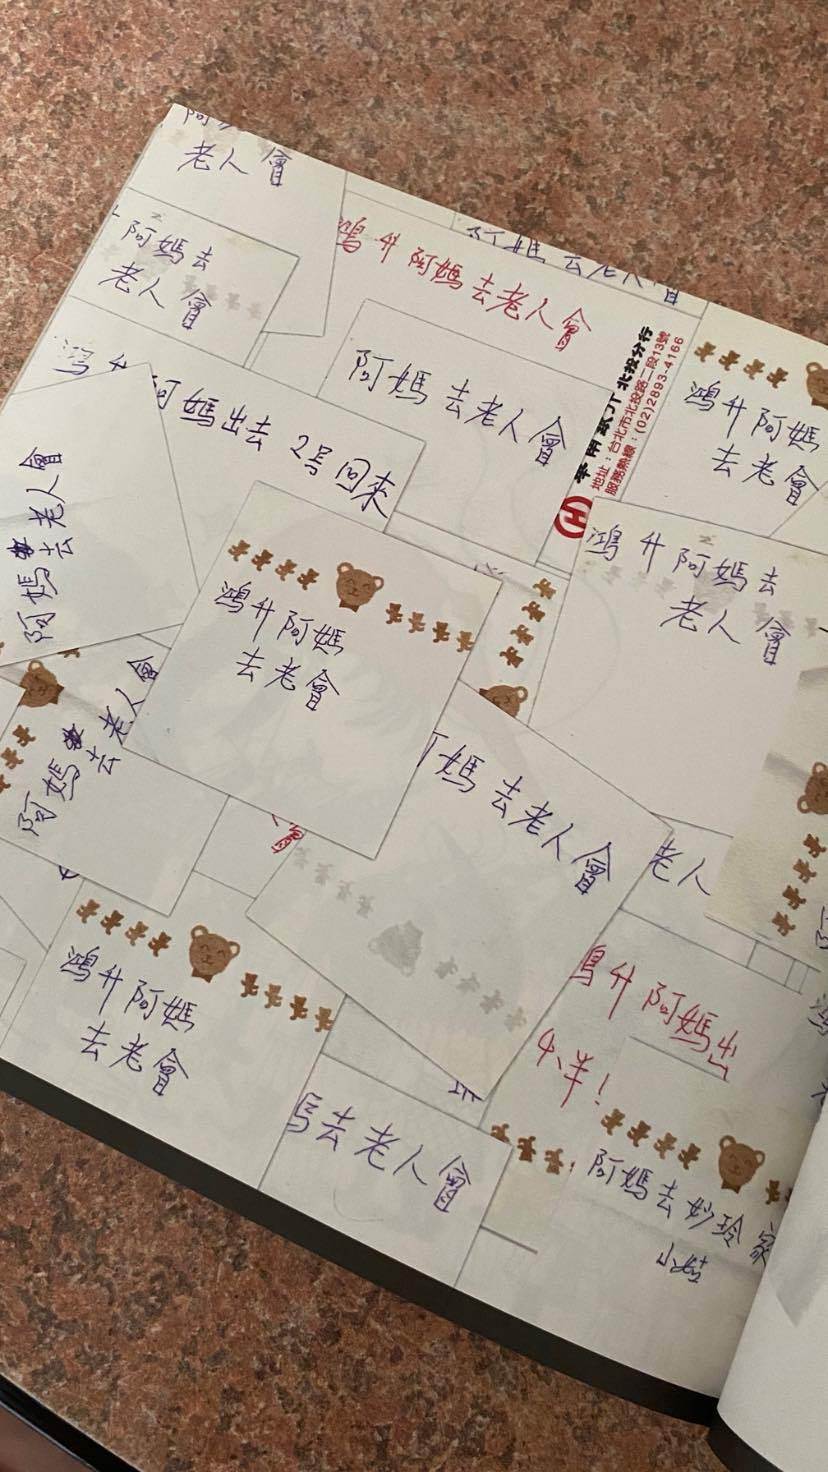 老人會
阿媽去
老人會
鴻升阿媽去老人會
阿媽去老人會
阿媽去老人會
北投分行
地址：台北市北投路二段13號
服務熱線：(02)2893-4166
鴻升阿媽
去老會
阿媽出去 2号回來
阿媽去老人會
鴻升阿媽去
老人會
鴻升阿媽
去老會
阿媽去老人會
媽去老人會
老人
鴻升阿媽
去老會
升阿媽出
去老人會
阿媽去妙玲家
小姑